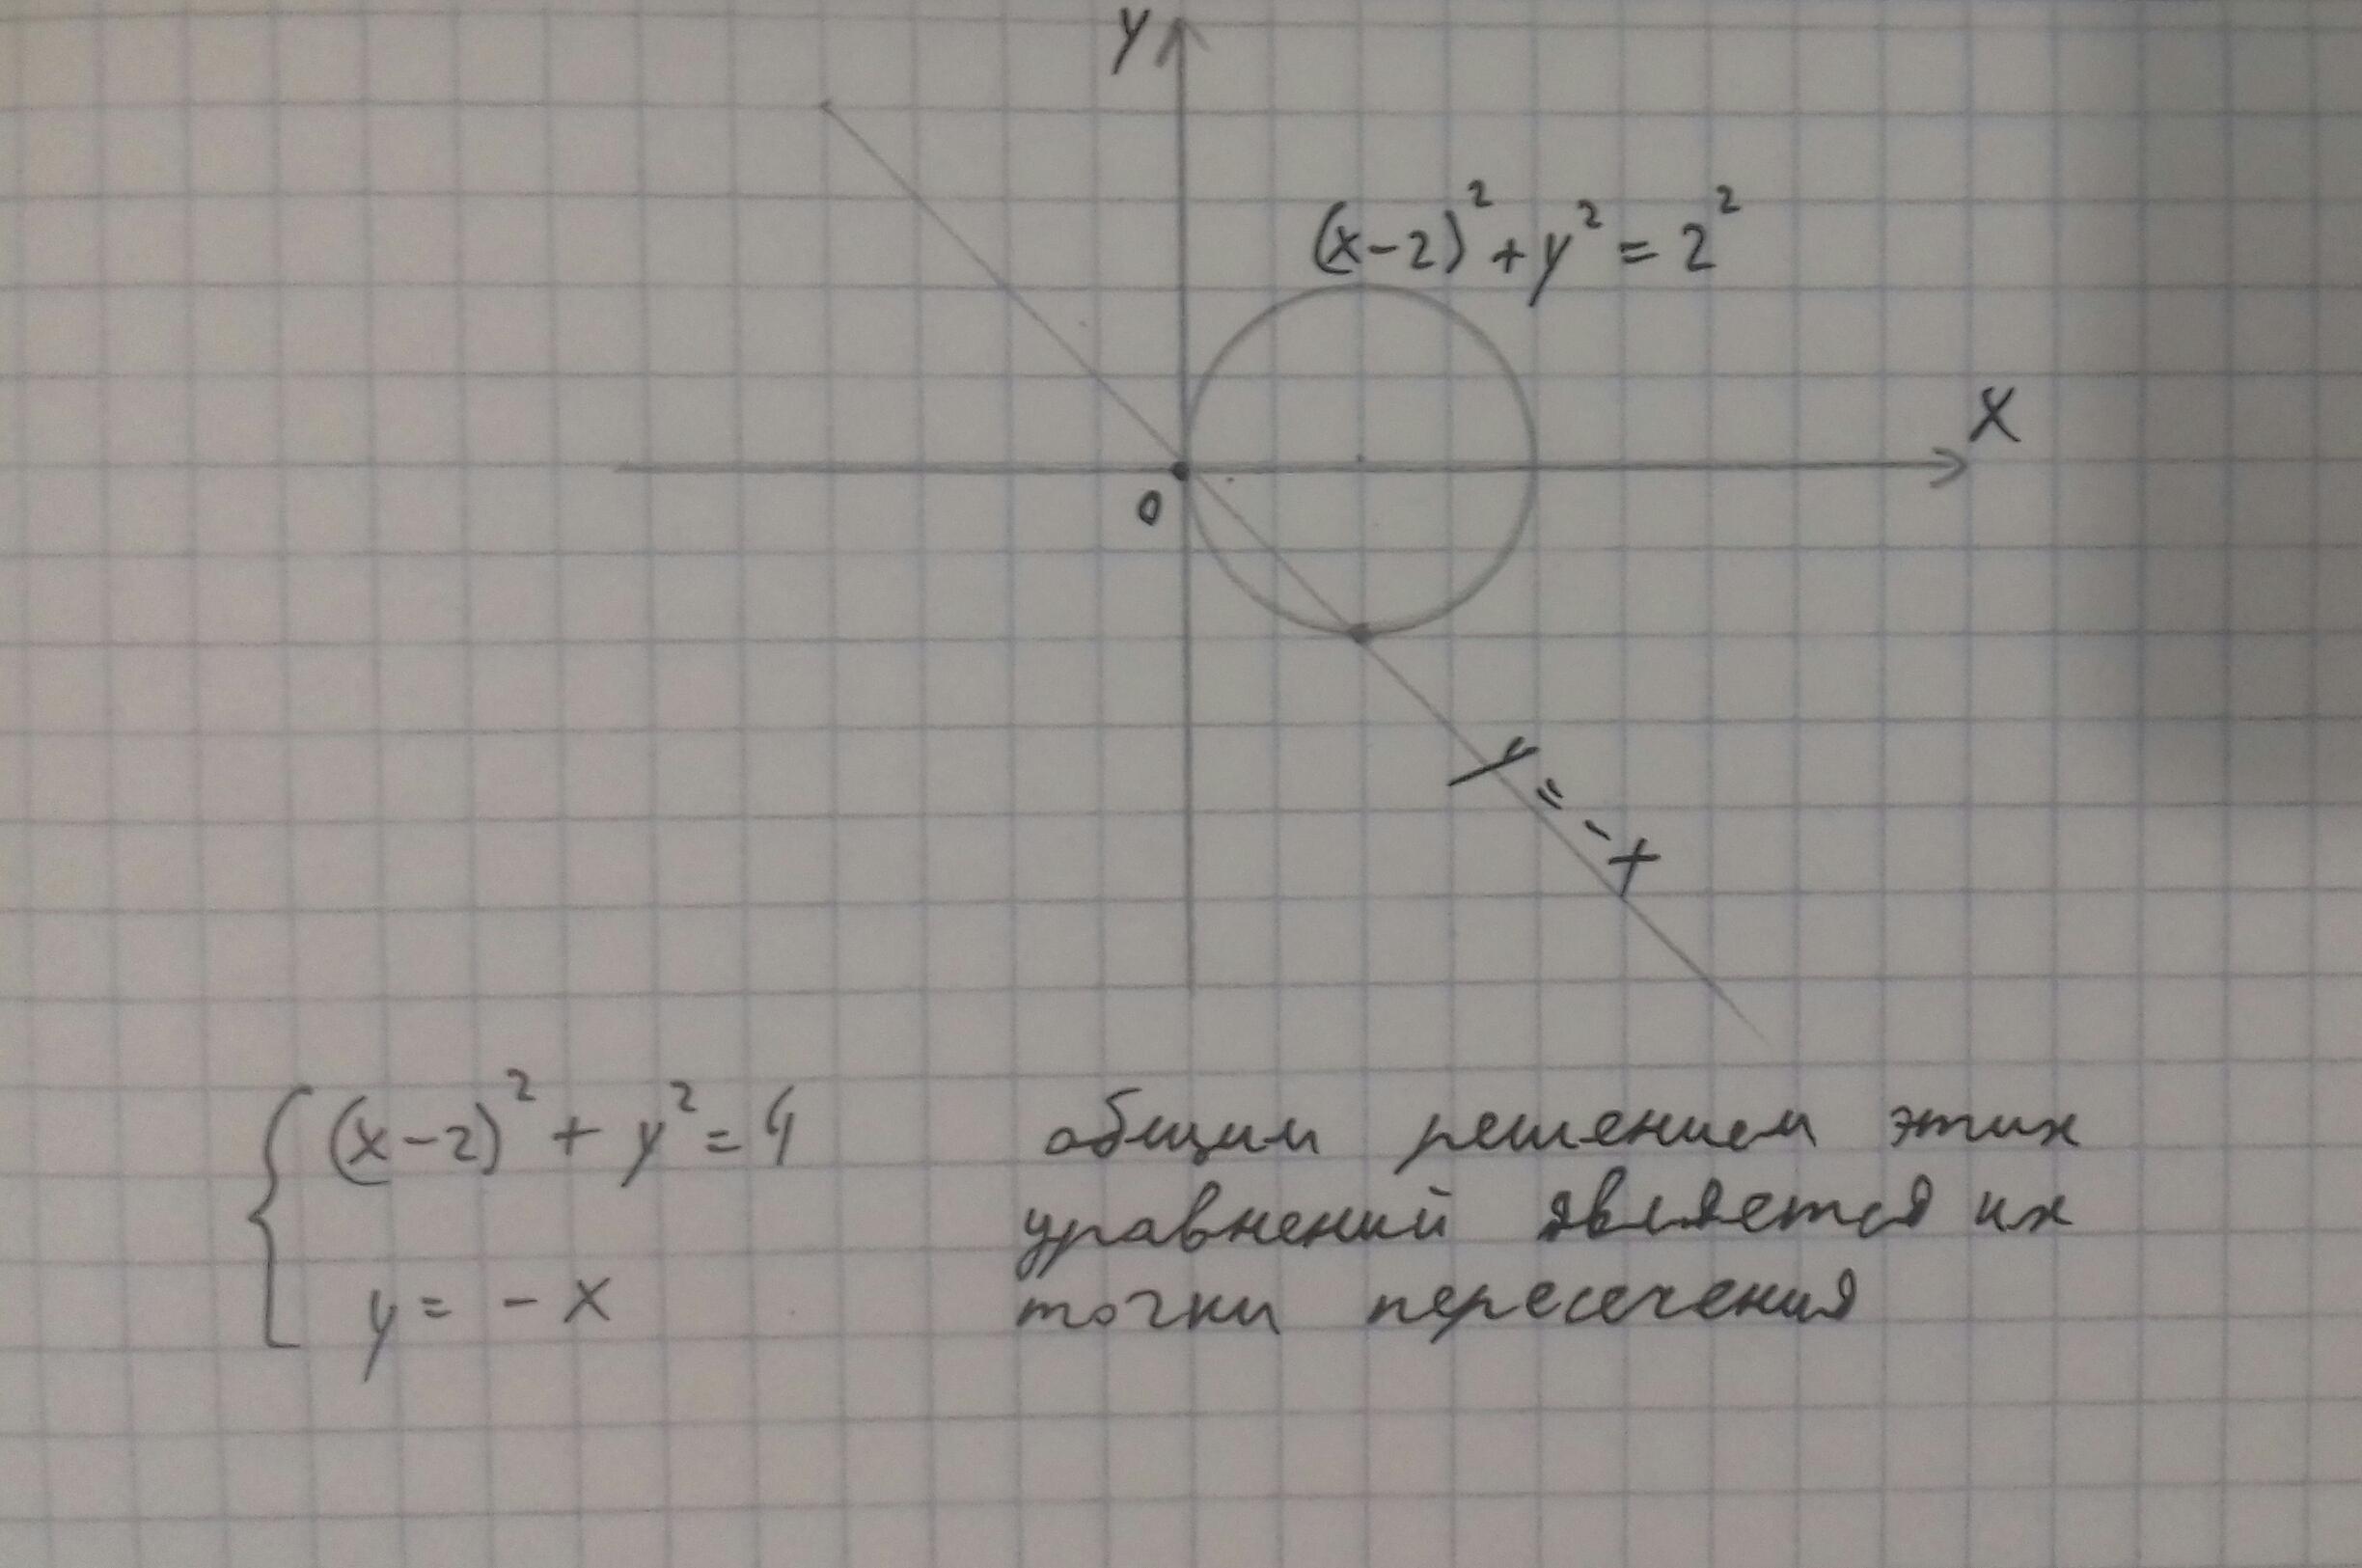 y
(x-2)² + y² = 2²
x
0
y = -x
(x-2)² + y² = 4
y = - x
общим решением этих
уравнений является их
точки пересечения